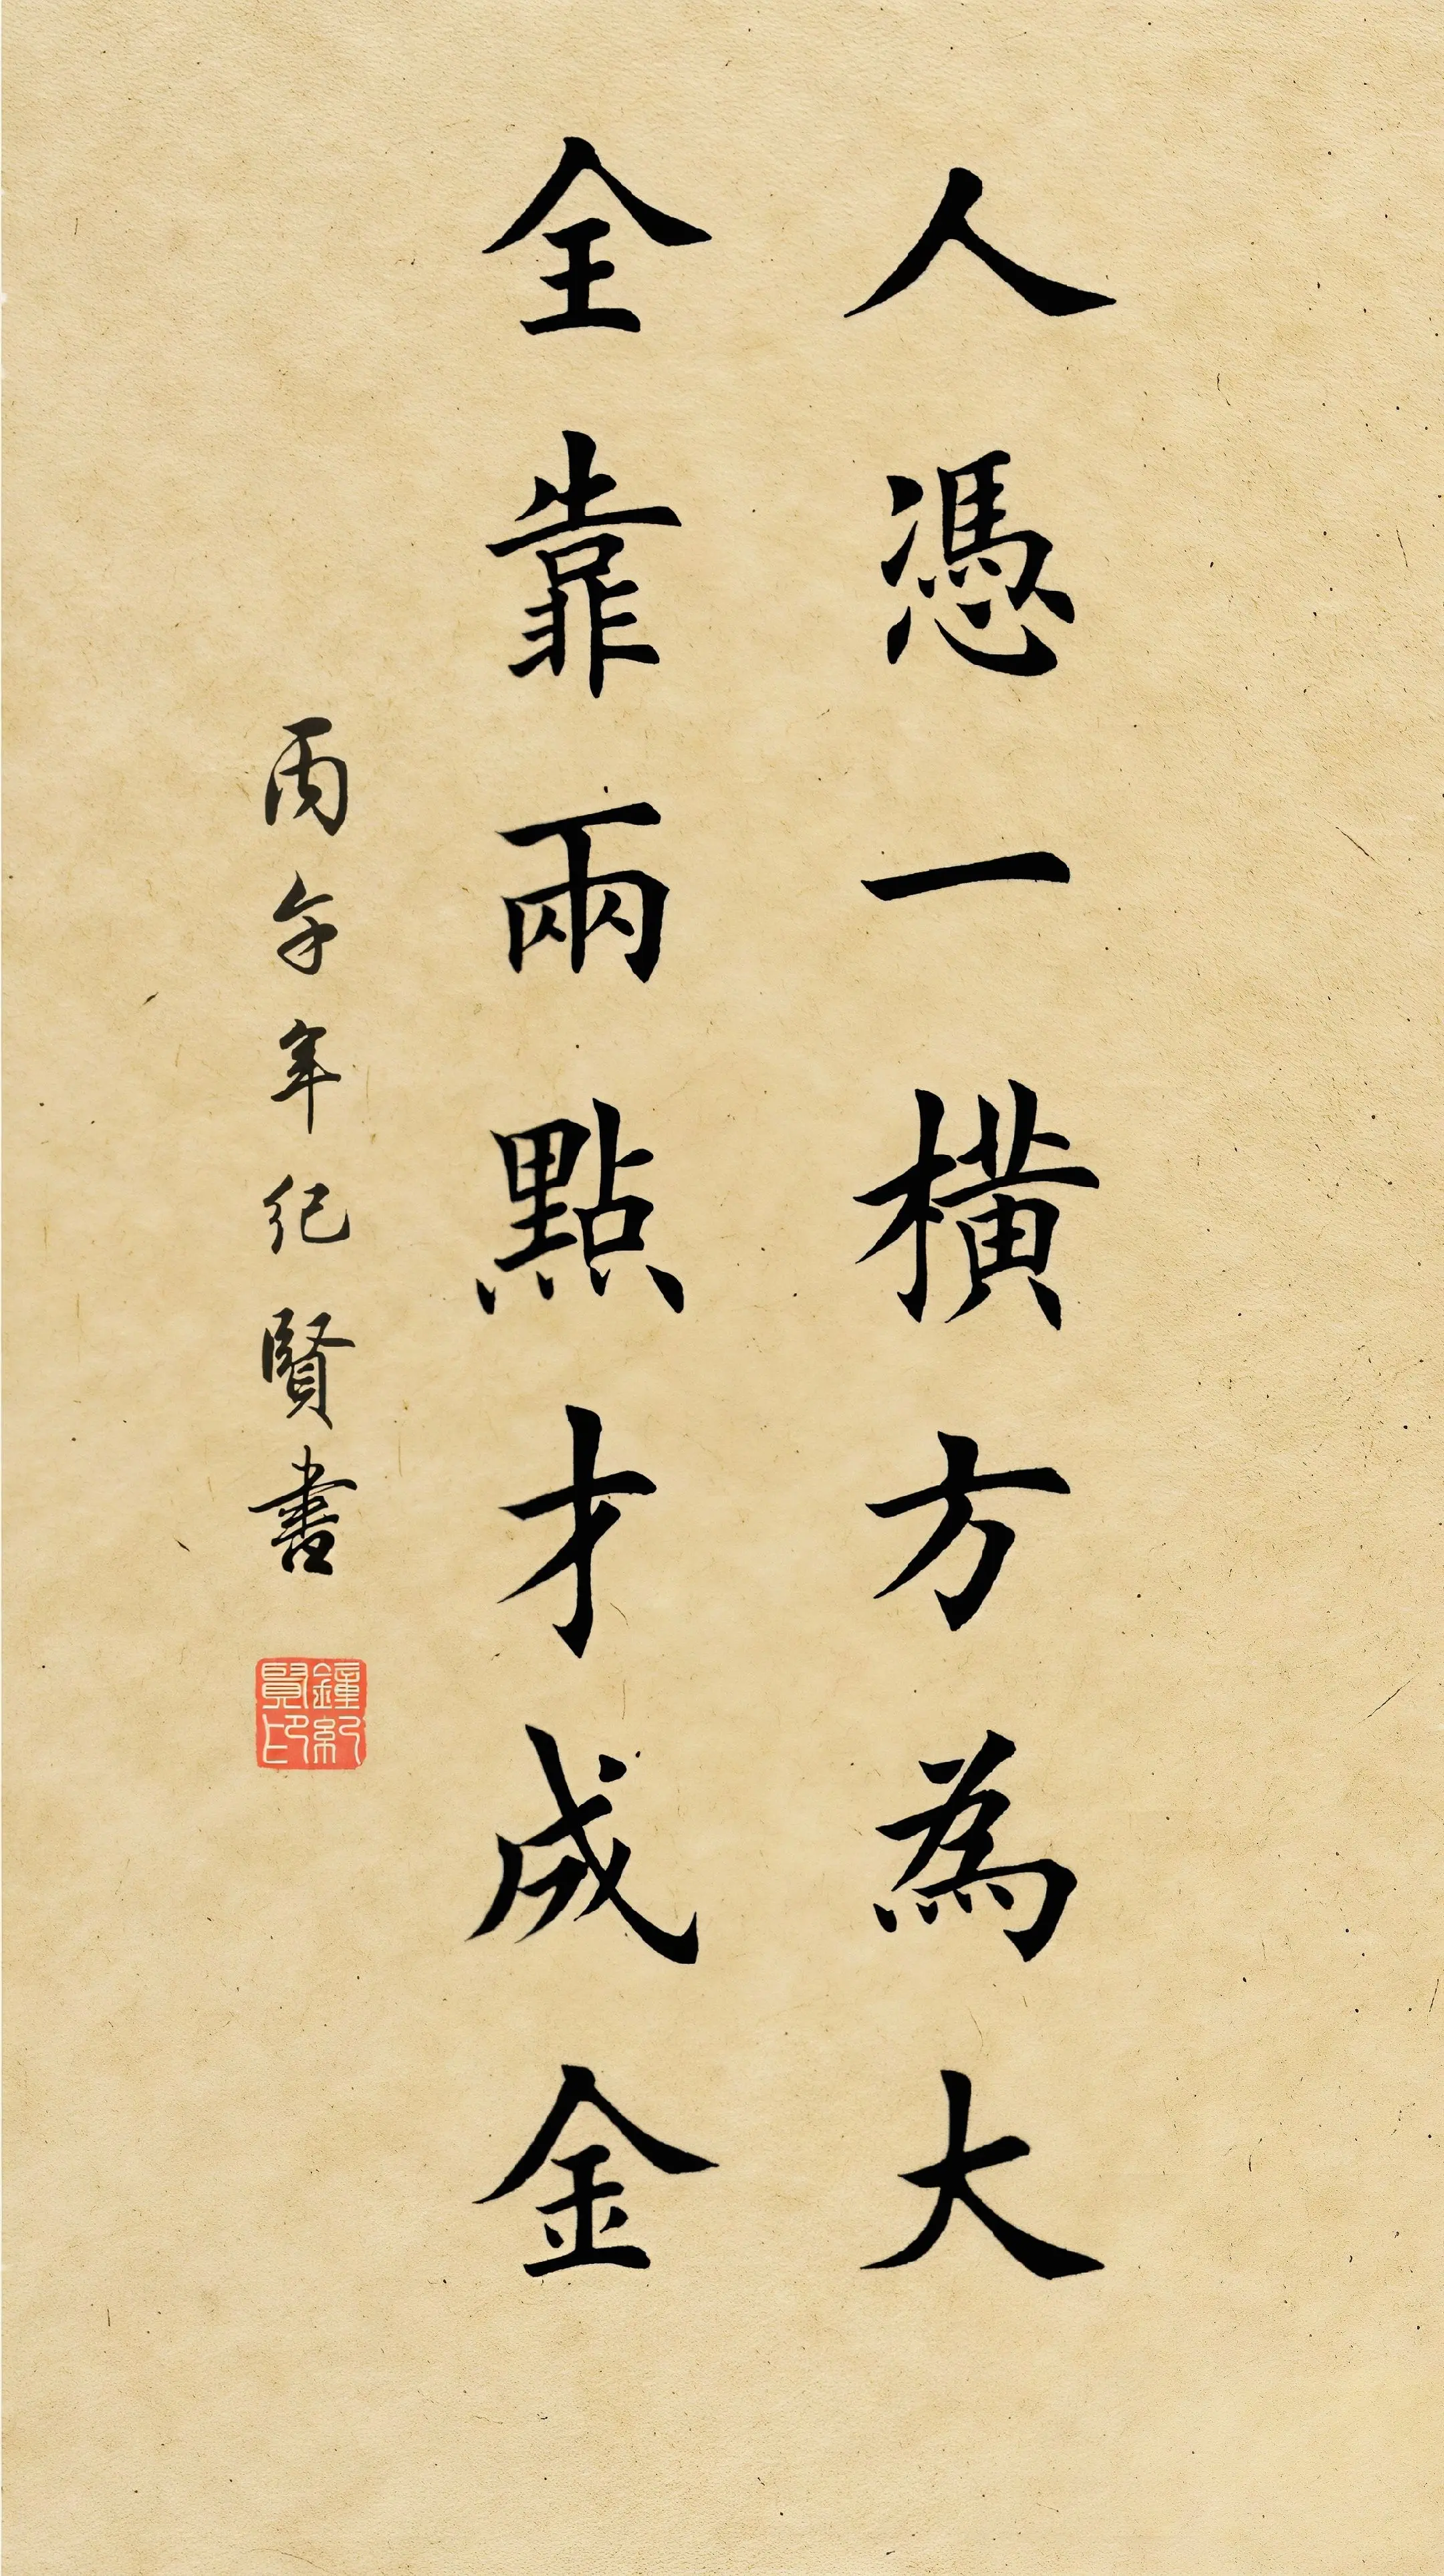 人憑一橫方為大
全靠兩點才成金
丙午年纪賢書
鐘紀賢印